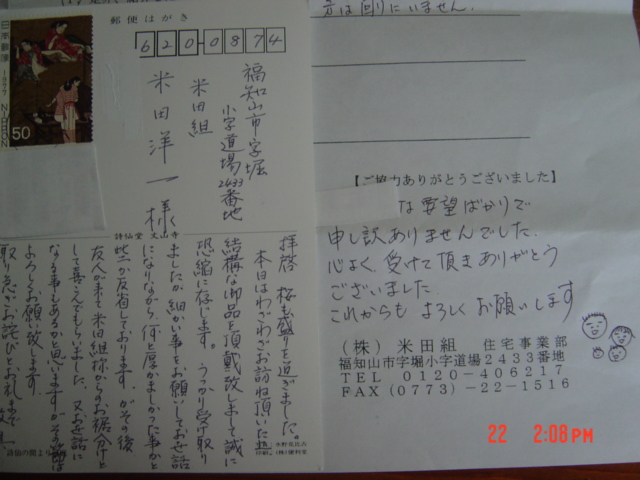 郵便はがき
620-0874
日本郵便
1977
NIPPON
50
福知山市字堀
小字道場2433番地
米田組
米田洋一様
詩仙堂 丈山寺
拝啓 桜も盛りを過ぎました。
本日はわざわざお訪ね頂いた上
結構な御品を頂戴致しまして誠に
恐縮に存じます。うっかり受け取り
ましたが細い事をお願いしてお世話
になりながら、何と厚かましかった事かと
些か反省しております。がその後
友人が来て米田組様からのお裾分けと
して喜んでもらいました。又お世話に
なる事もあるかと思いますがその節は
よろしくお願い致します。
取り急ぎお詫びとお礼まで
方は回りにいません。
【ご協力ありがとうございました】
な要望ばかりで
申し訳ありませんでした。
心よく受けて頂きありがとう
ございました。
これからもよろしくお願いします
(株) 米田組 住宅事業部
福知山市字堀小字道場2433番地
TEL 0120-406217
FAX (0773)-22-1516
22 2:08PM